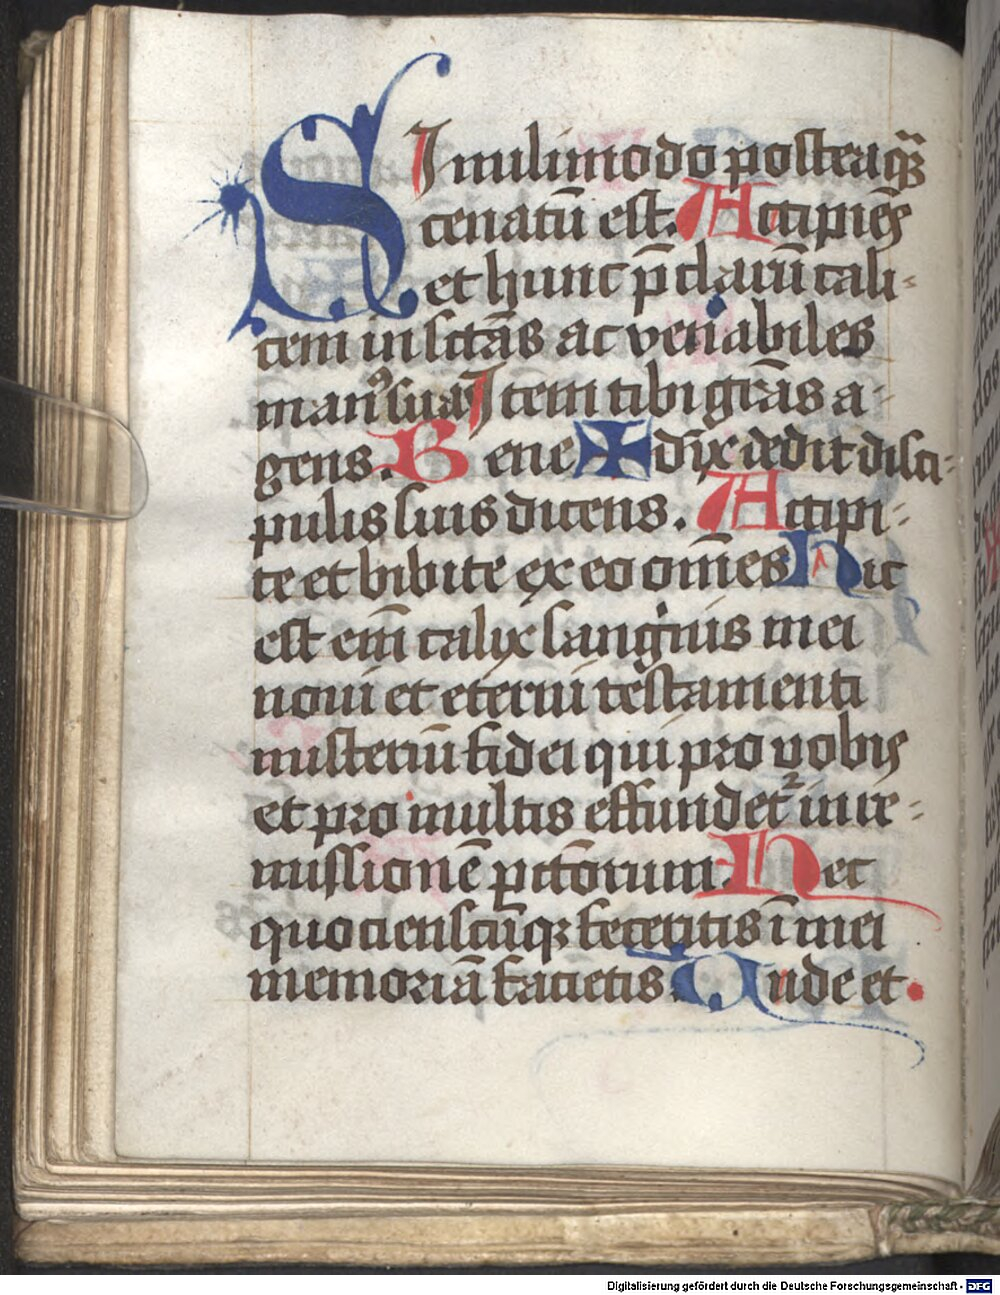 SImilimodo posteaqȝ̃
cenatū est. Accipiēs
et hunc p̄clarū cali-
cem in sctās ac veñabiles
manꝰ suas Item tibi grās a-
gens. Bene ✠ dix̄ dedit disci-
pulis suis dicens. Accipi-
te et bibite ex eo om̄es Hic
est em̄ calix sangⁱnis mei
noui et eterni testamenti
misteriū fidei qui pro vobis
et pro multis effundet᷑ in re-
missionē pctōrum. Hec
quocienscūqȝ feceritis ī mei
memoriā facietis Vnde et
Digitalisierung gefördert durch die Deutsche Forschungsgemeinschaft - DFG